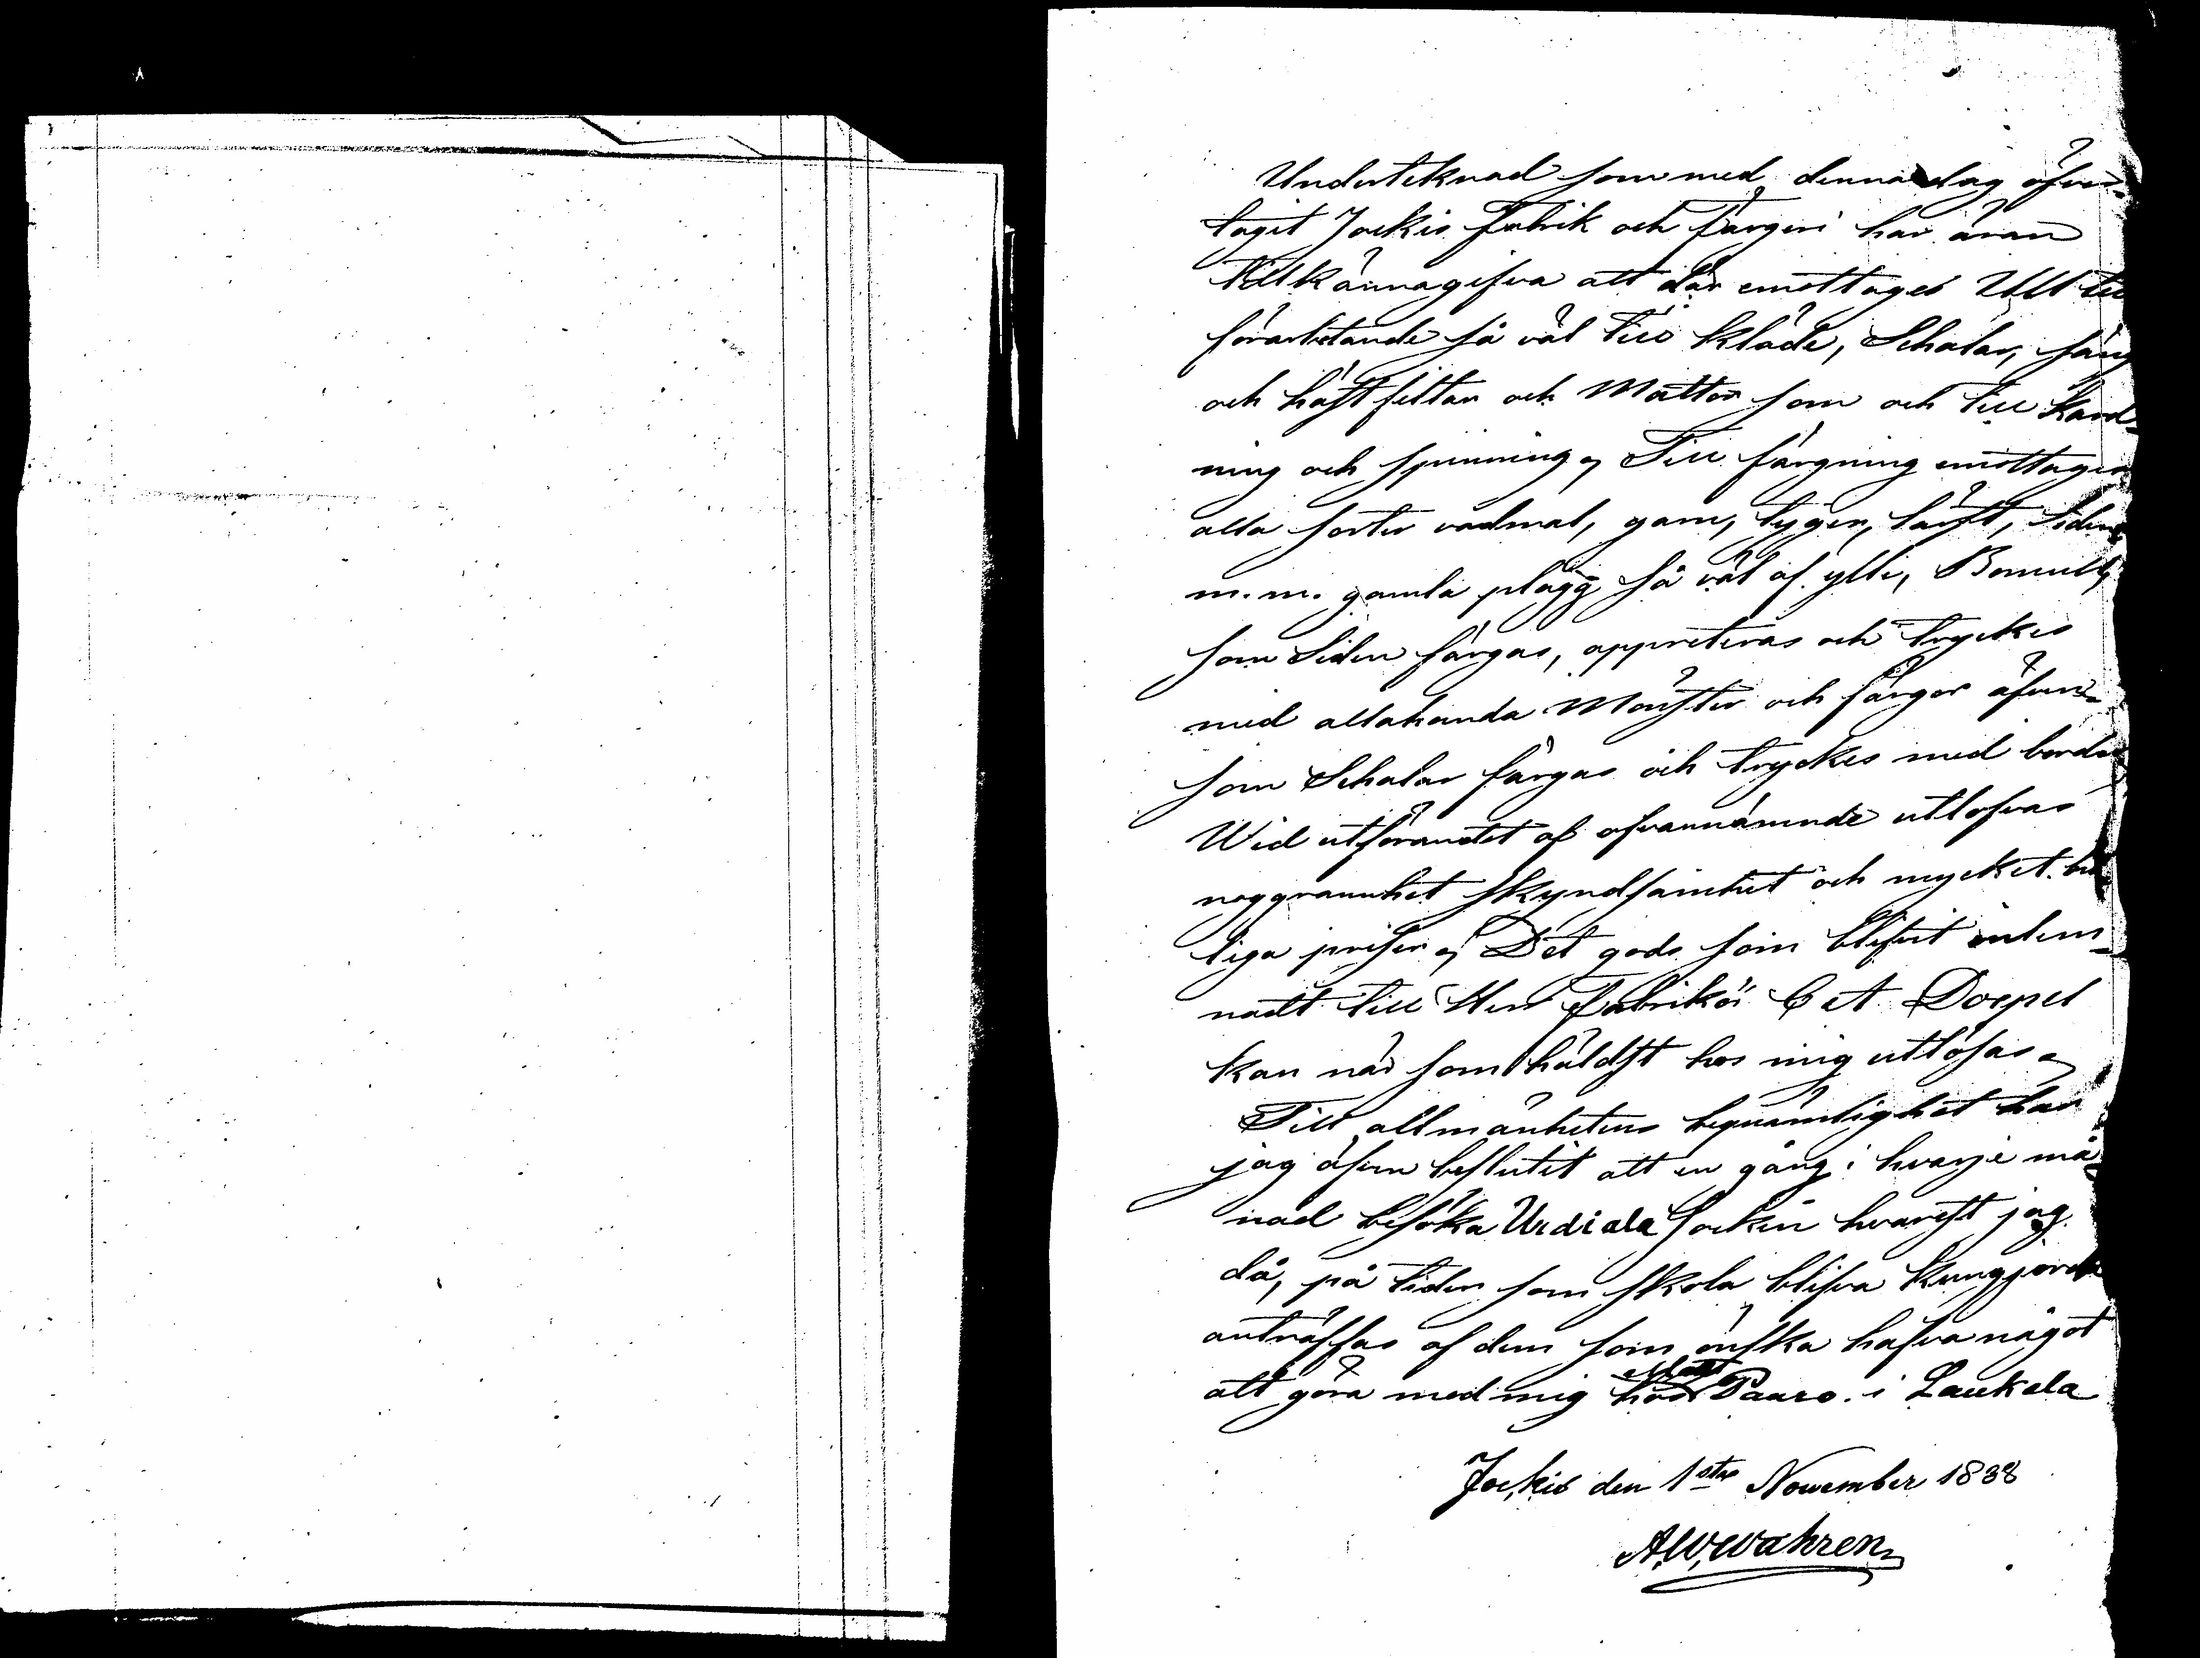 Underteknad som med denna dag öfver-
tagit Jockis Fabrik och färgeri har äran
tillkännagifva att där emottages Ull till
förarbetande så väl till kläde, Schalar, säng
och hästfiltar och Mattor som och till Kard-
ning och spinning, Till färgning emottages
alla sorter vadmal, garn, tyger, lärft, siden
m.m. gamla plagg så väl af ylle, Bomull,
som Siden färgas, appreteras och tryckes
med allahanda Mönster och färger äfven-
som Schalar färgas och tryckes med border
Wid utförandet af ofvannämnde utlofvas
noggrannhet skyndsamhet och mycket bil
liga priser, Det gods som blifvit inlem-
nadt till Herr Fabrikör C A Doepel
kan när som häldst hos mig utlösas,
Till allmänhetens beqvämlighet har
jag äfven beslutit att en gång i hvarje må
nad besöka Urdiala Socken hvarest jag
då, på tider som skola blifva kungjorde
anträffas af dem som önska hafva något
att göra med mig hos Paaro. i Laukela
Jockis den 1sta November 1838
A.W.Wahren